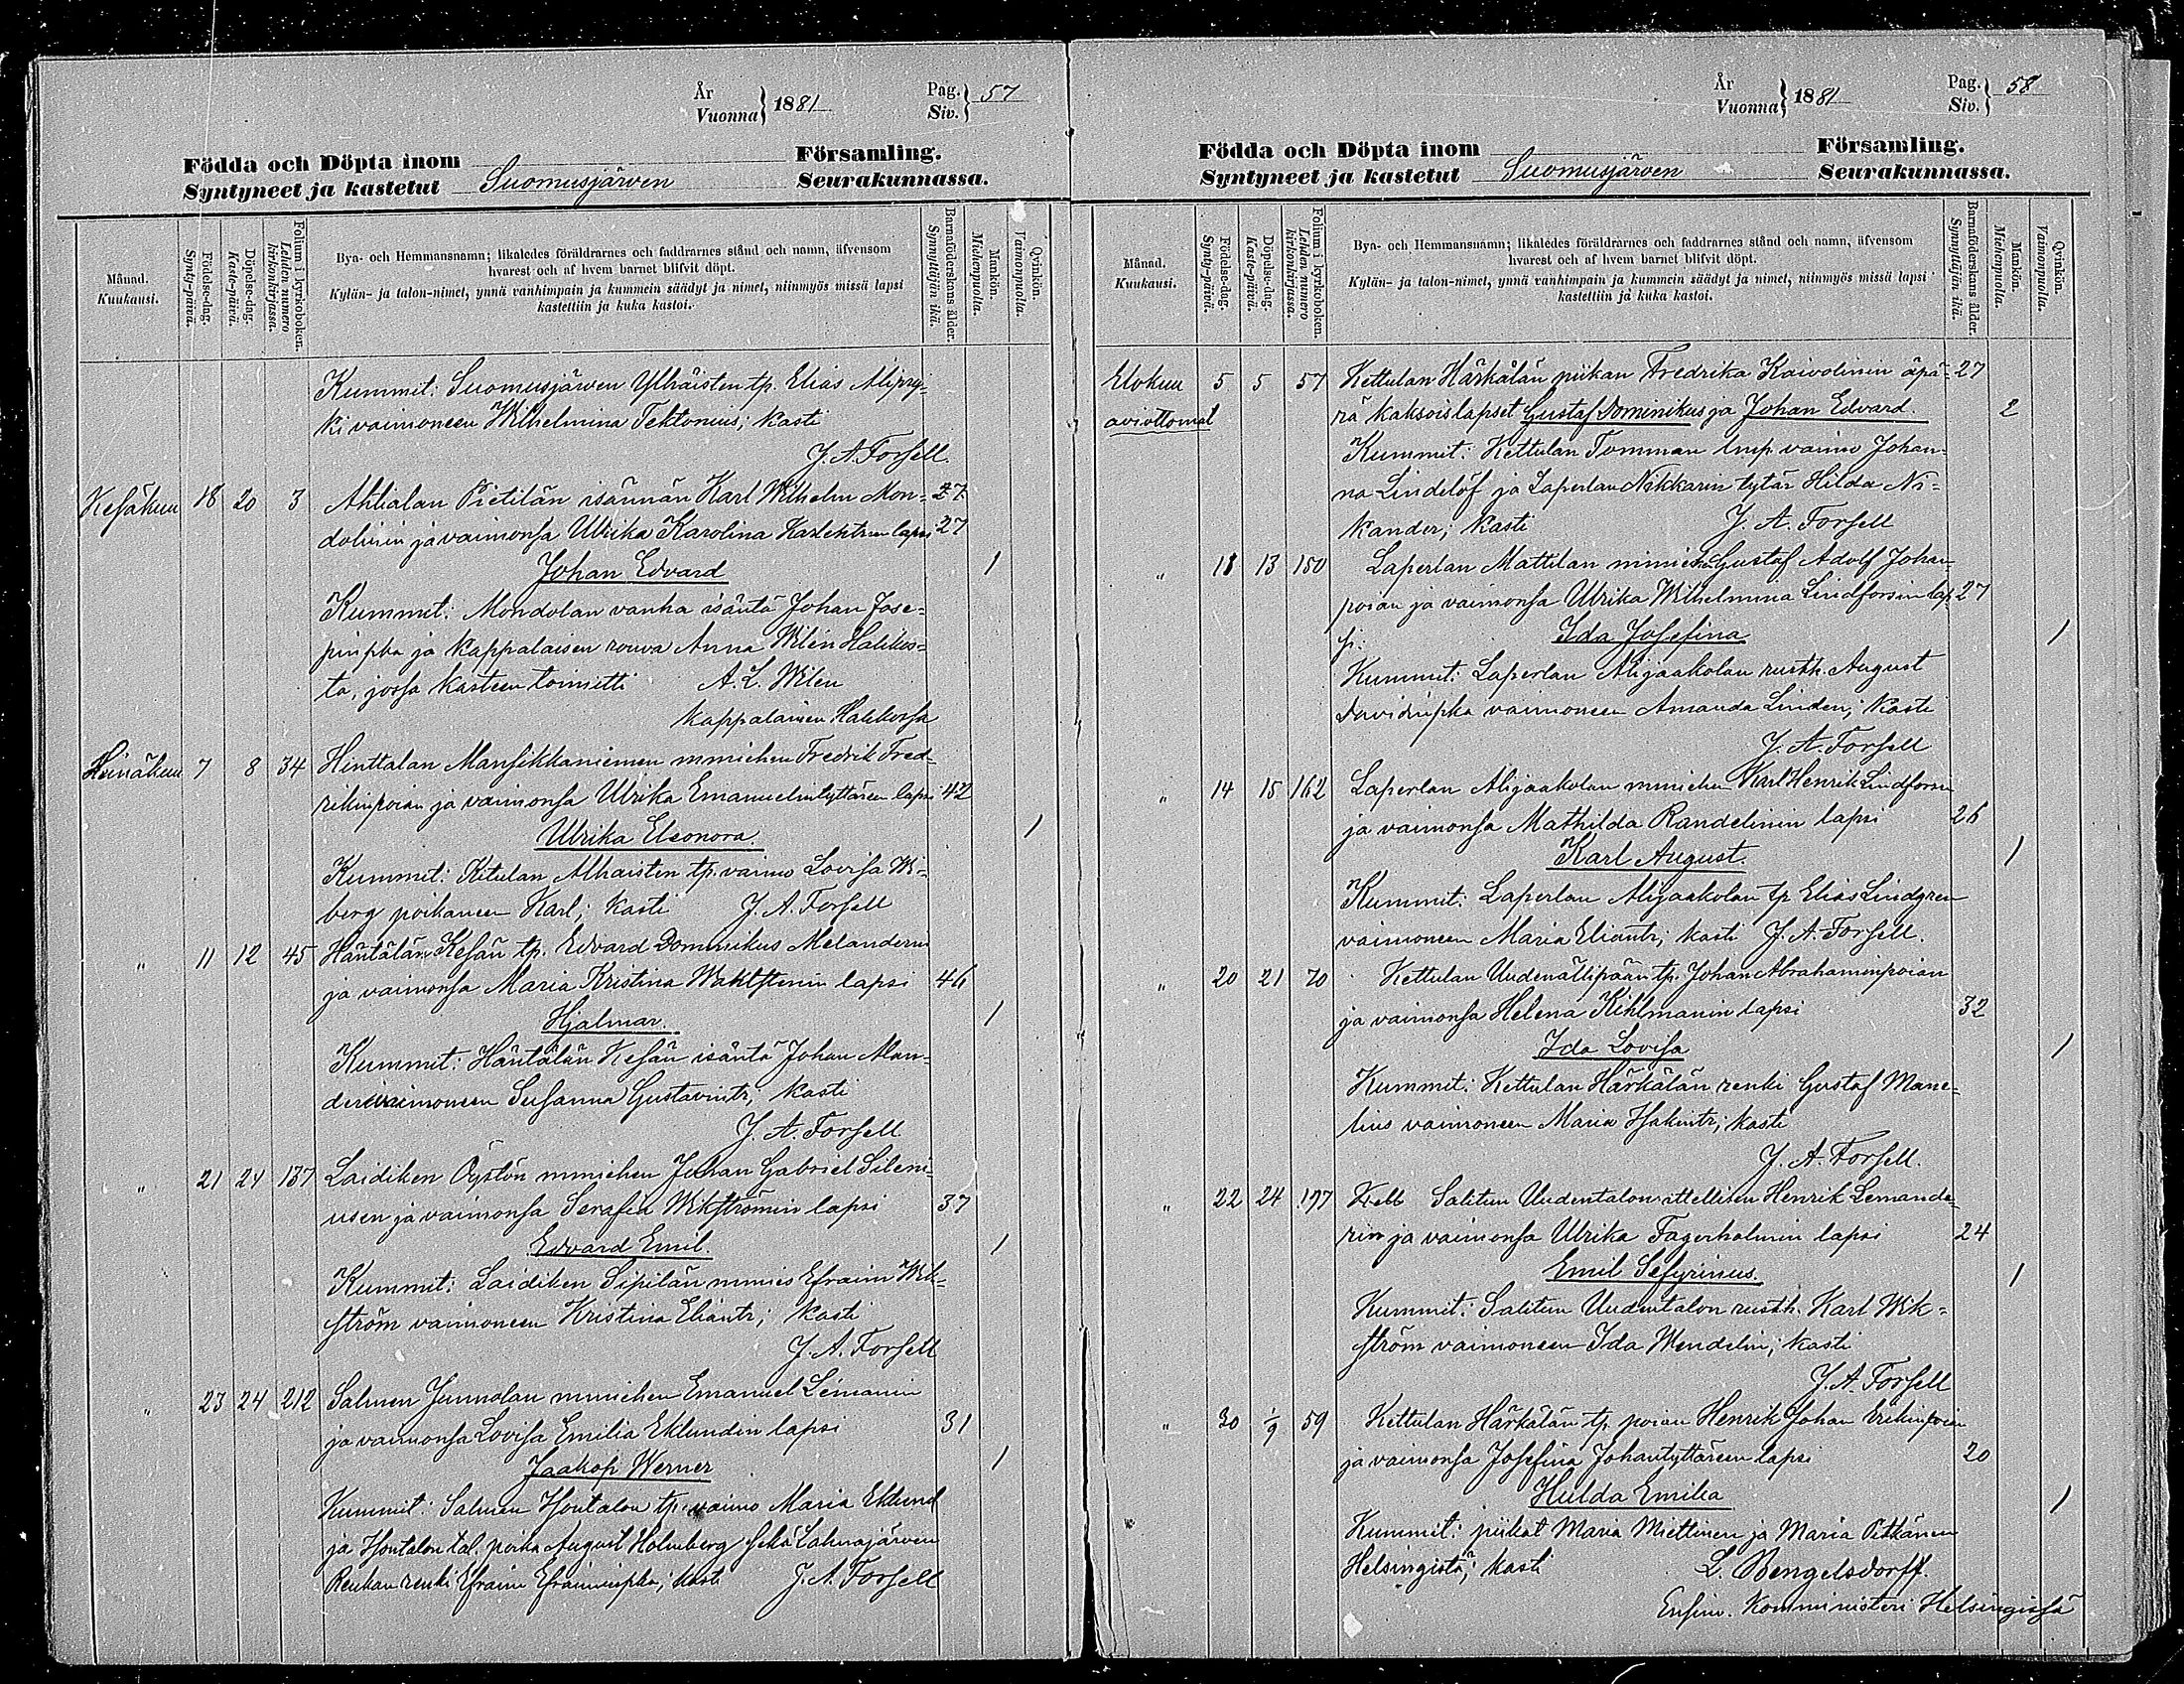 År
Vuonna } 1881
Pag.
Siv. } 57
Födda och Döpta inom Församling.
Syntyneet ja kastetut Suomusjärven Seurakunnassa.
Månad.
Kuukausi.
Födelse-dag.
Synty-päivä.
Döpelse-dag.
Kaste-päivä.
Folium i kyrkoboken.
Lehden numero kirkonkirjassa.
Bya- och Hemmansnamn; likaledes föräldrarnes och faddrarnes stånd och namn, äfvensom
hvarest och af hvem barnet blifvit döpt.
Kylän- ja talon-nimet, ynnä vanhimpain ja kummein säädyt ja nimet, niinmyös missä lapsi
kastettiin ja kuka kastoi.
Barnaföderskans ålder.
Synnyttäjän ikä.
Mankön.
Miehenpuolia.
Qvinkön.
Vaimonpuolia.
Kummit: Suomusjärven Ylhäisten tp. Elias Alipry-
ki vaimoneen Wilhelmina Tektonius; kasti
J. A. Forsell.
Kesäkuu 18 20 3 Ahtialan Pietilän isännän Karl Wilhelm Mon- 27
dolinin ja vaimonsa Ulrika Karolina lapsi 27
Johan Edvard 1
Kummit: Mondolan vanha isäntä Johan Jose-
pinpka ja Kappalaisen rouva Anna Wilén Halikos-
ta, jossa kasteen toimitti A. L. Wilen
kappalainen Halikossa
Heinäkuu 7 8 34 Hinttalan Mansikkaniemen mmiehen Fredrik Fred-
rikinpoian ja vaimonsa Ulrika Emanuelintyttären lapsi 42
Ulrika Eleonora. 1
Kummit: Kitulan Alhaisten tp. vaimo Lovisa Wi-
berg poikaneen Karl; kasti J. A. Forsell
" 11 12 45 Häntälän Kesän tp. Edvard Dominikus Melanderin
ja vaimonsa Maria Kristina Wahlstenin lapsi 46
Hjalmar. 1
Kummit: Häntälän Kesän isäntä Johan Man-
der vaimoneen Susanna Gustavintr; kasti
J. A. Forsell
" 21 24 137 Laidiken Öystön mmiehen Johan Gabriel Sileni-
usen ja vaimonsa Serafia Wikströmin lapsi 37
Edvard Emil. 1
Kummit: Laidiken Sipilän mmies Efraim Wik-
ström vaimoneen Kristina Eliantr; kasti
J. A. Forsell
" 23 24 212 Salmen Junnolan mmiehen Emanuel Lemanin
ja vaimonsa Lovisa Emilia Eklundin lapsi 31
Jaakop Werner 1
Kummit: Salmen Isontalon tp. vaimo Maria Eklund
ja Isontalon tal. poika August Holmberg sekä Lahnajärven
Renkan renki Efraim Efraiminpka; kasti J. A. Forsell
År
Vuonna } 1881
Pag.
Siv. } 58
Födda och Döpta inom Församling.
Syntyneet ja kastetut Suomusjärven Seurakunnassa.
Månad.
Kuukausi.
Födelse-dag.
Synty-päivä.
Döpelse-dag.
Kaste-päivä.
Folium i kyrkoboken.
Lehden numero kirkonkirjassa.
Bya- och Hemmansnamn; likaledes föräldrarnes och faddrarnes stånd och namn, äfvensom
hvarest och af hvem barnet blifvit döpt.
Kylän- ja talon-nimet, ynnä vanhimpain ja kummein säädyt ja nimet, niinmyös missä lapsi
kastettiin ja kuka kastoi.
Barnaföderskans ålder.
Synnyttäjän ikä.
Mankön.
Miehenpuolia.
Qvinkön.
Vaimonpuolia.
Elokuu 5 5 57 Kettulan Härkälän piikan Fredrika Kaivolinin äpä- 27
aviottomat rä kaksoislapset Gustaf Dominikus ja Johan Edvard. 2
Kummit: Kettulan Tomman lmp. vaimo Johan-
na Lindelöf ja Laperlan Nikkarin tytär Hilda Ni-
kander; kasti J. A. Forsell
" 11 13 150 Laperlan Mattilan mmiehen Gustaf Adolf Johan-
poian ja vaimonsa Ulrika Wilhelmina Lindforsin lap- 27
si. Ida Josefina 1
Kummit: Laperlan Alijaakolan rusth. August
Davidinpka vaimoneen Amanda Linden; kasti
J. A. Forsell
" 14 15 162 Laperlan Alijaakolan mmiehen Karl Henrik Lindforsin
ja vaimonsa Mathilda Randelinin lapsi 26
Karl August. 1
Kummit: Laperlan Alijaakolan tp. Elias Lindgren
vaimoneen Maria Eliantr; kasti J. A. Forsell.
" 20 21 70 Kettulan Uudenällipään tp. Johan Abrahaminpoian
ja vaimonsa Helena Kihlmanin lapsi 32
Ida Lovisa 1
Kummit: Kettulan Härkälän renki Gustaf Mane-
lius vaimoneen Maria Isakintr; kasti
J. A. Forsell.
" 22 24 197 Salitun Uudentalon attellisen Henrik Lemande-
rin ja vaimonsa Ulrika Fagerholmin lapsi 24
Emil Sefyrinus. 1
Kummit: Salitun Uudentalon rusth. Karl Wik-
ström vaimoneen Ida Wendelin; kasti
J. A. Forsell
" 30 1/9 59 Kettulan Härkälän tp. poian Henrik Johan Erikinpoian
ja vaimonsa Josefina Johantyttären lapsi 20
Hulda Emilia 1
Kummit: piikat Maria Miettinen ja Maria Pitkänen
Helsingistä; kasti L. Bengelsdorff.
Ensim. Komministeri Helsingissä